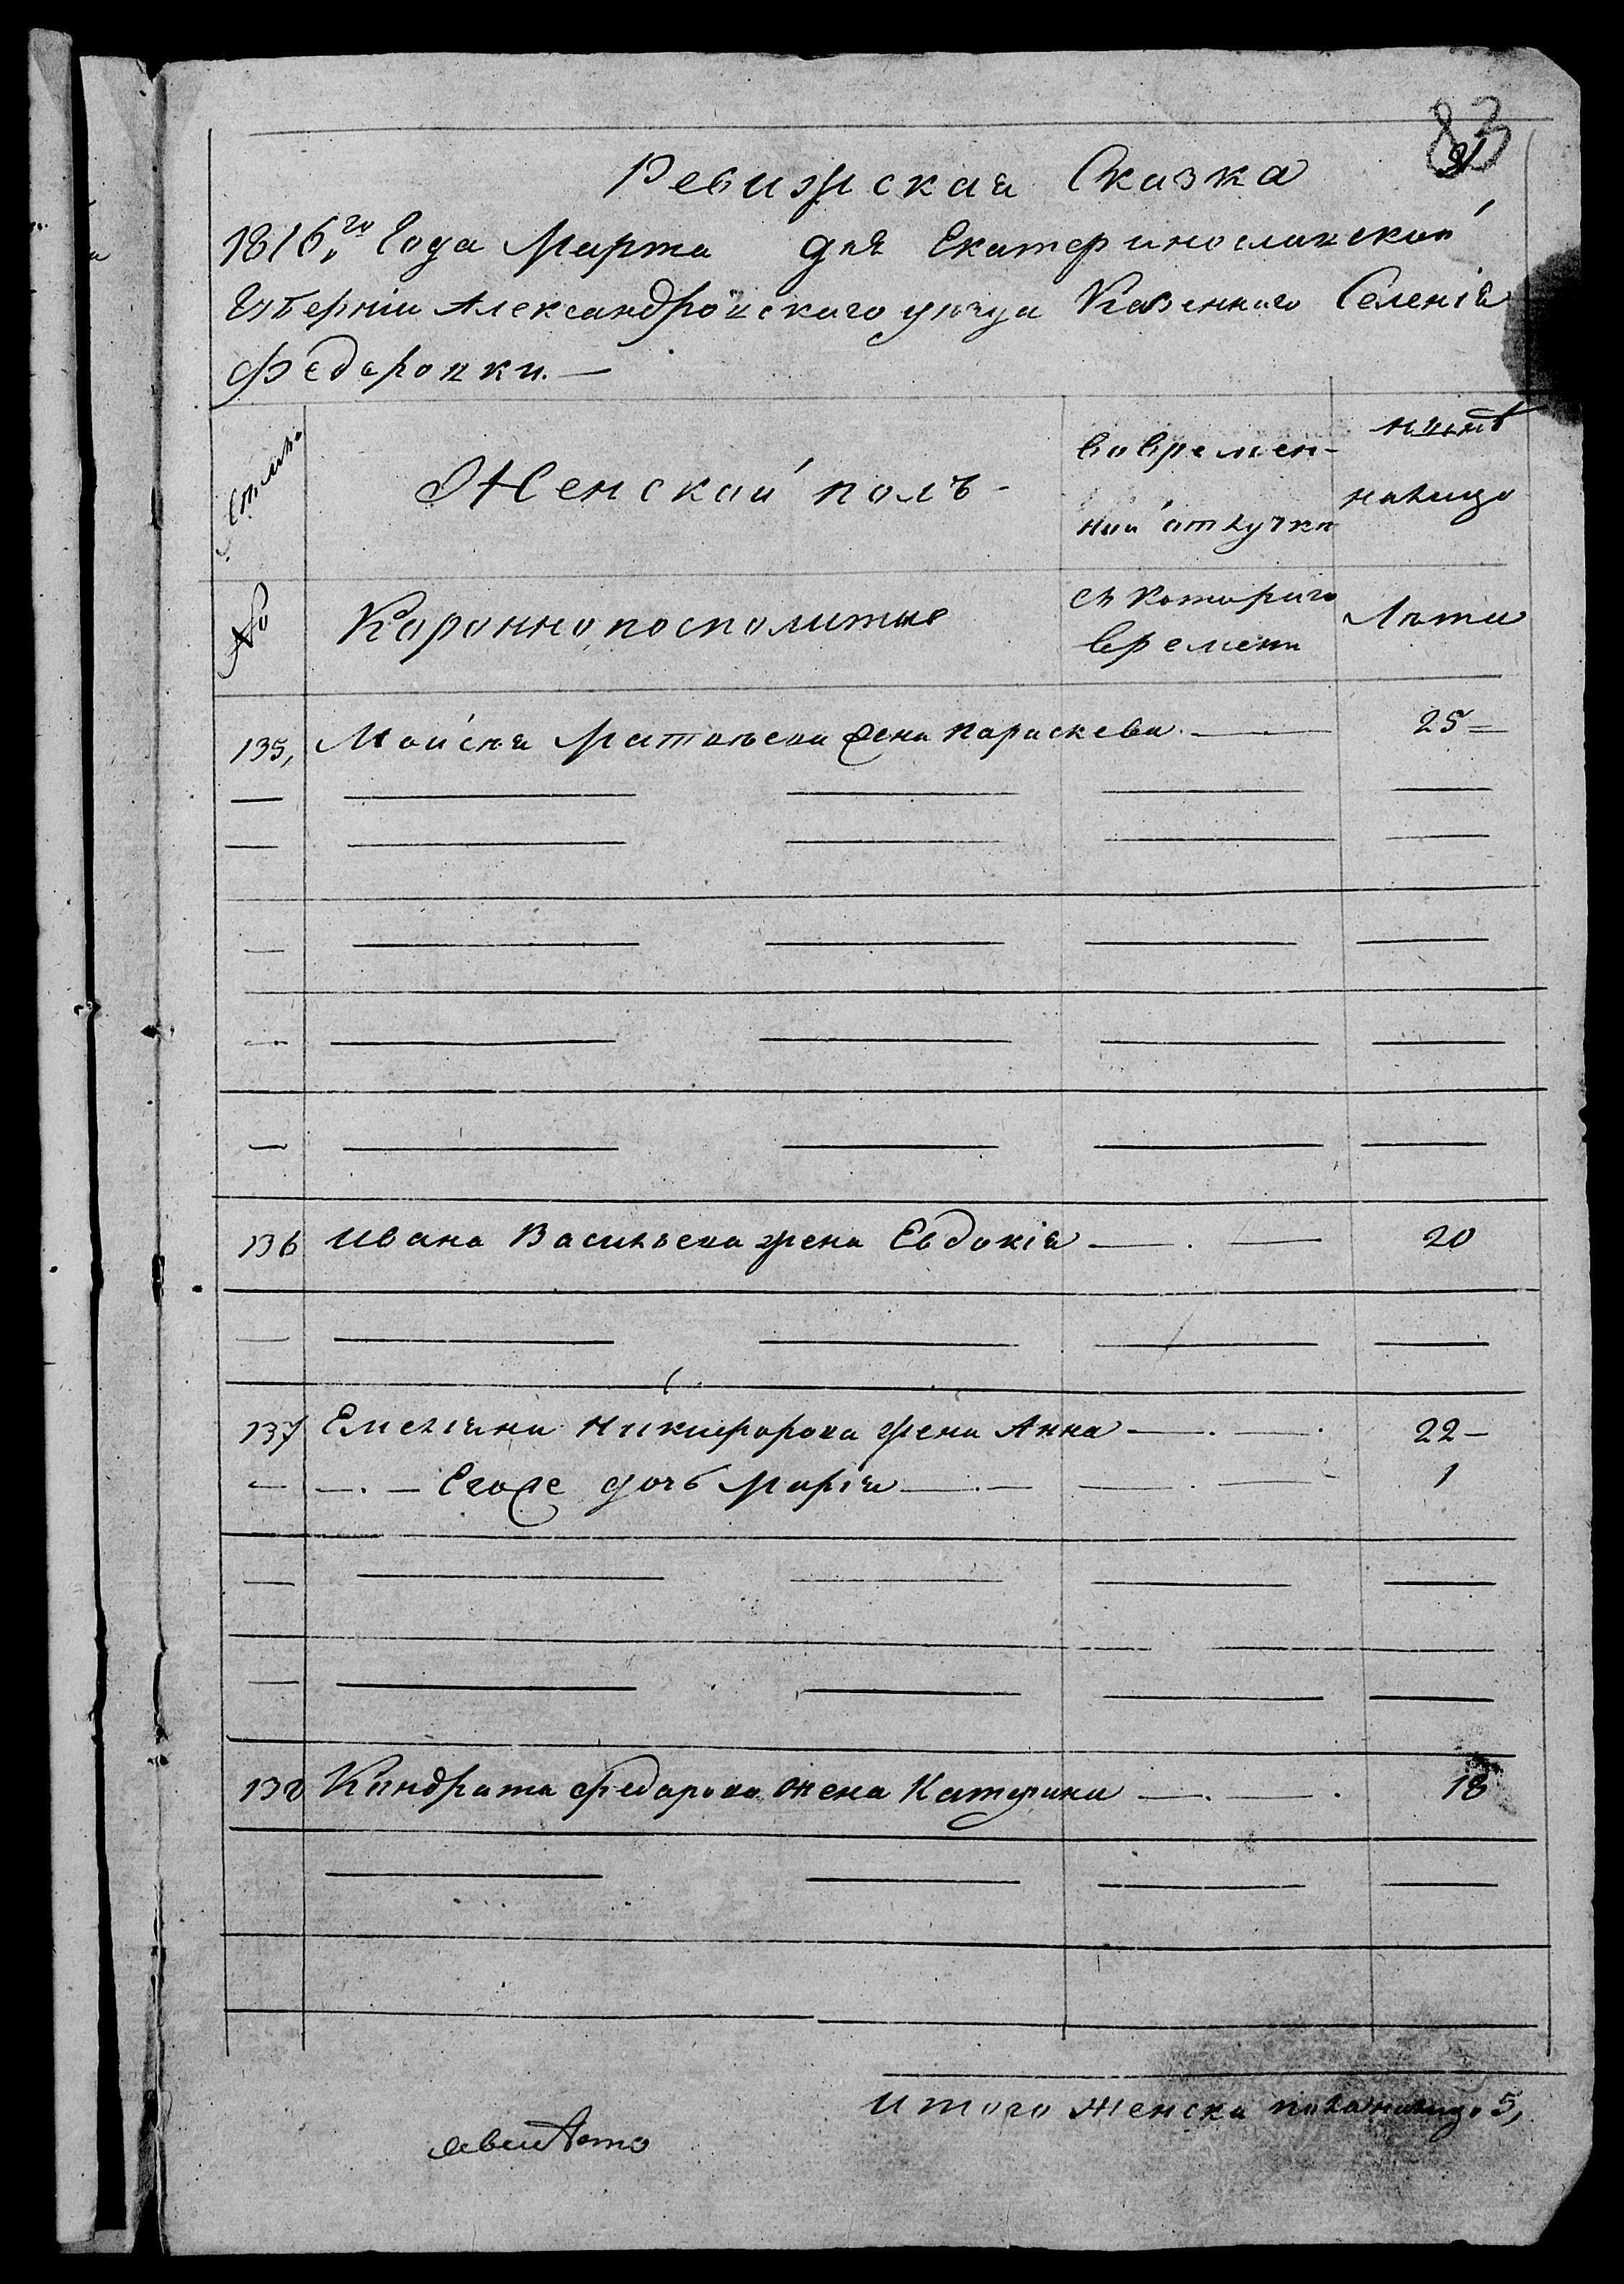 83
Ревижская Сказка
1816го Года Марта дня Екатеринославской
Губернии Александровского уезда Казенного Селенія
Федоровки. —
Женской полъ
вовремен-
ной отлучки
нынѣ
налицо
№
Коронно посполитые
съ Котораго
времени
Лѣта
135, Мойсея Матвѣева жена параскева. 25
136 Ивана Васильева жена Евдокія 20
137 Емельяна Никифорова жена Анна 22
Егоже дочь Марія 1
138 Кондрата Федорова жена Катерина 18
Итого женска пола налицо 5,